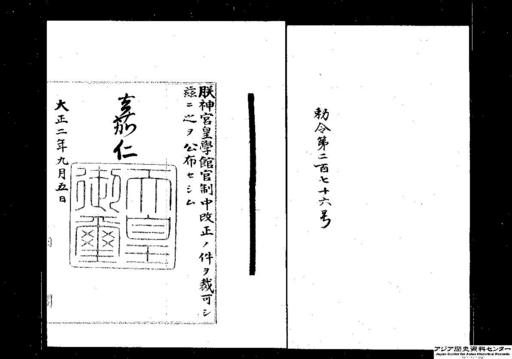 勅令第二百七十六号
朕神宮皇學館官制中改正ノ件ヲ裁可シ
茲ニ之ヲ公布セシム
嘉仁
天皇御璽
大正二年九月五日
アジア歴史資料センター
Japan Center for Asian Historical Records